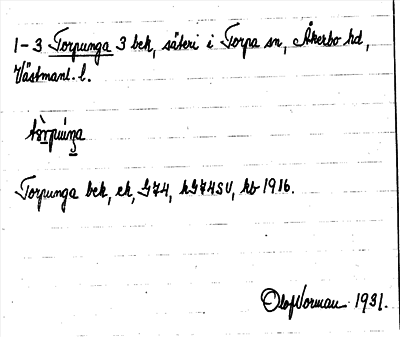 1-3 Torpunga 3 bek, säteri i Torpa sn, Åkerbo hd,
Västmanl. l.
Torpunga bek, ek, G74, hG74SV, kb 1916.
Olof Norman 1931.